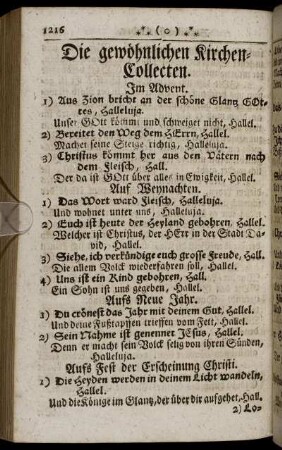 1216
Die gewöhnlichen Kirchen-
Collecten.
Im Advent.
1) Aus Zion bricht an der schöne Glantz GOt-
tes, Halleluja.
Unser GOtt kömmt und schweiget nicht, Hallel.
2) Bereitet den Weg dem HErrn, Hallel.
Machet seine Steige richtig, Halleluja.
3) Christus kömmt her aus den Vätern nach
dem Fleisch, Hall.
Der da ist GOtt über alles in Ewigkeit, Hallel.
Auf Weynachten.
1) Das Wort ward Fleisch, Halleluja.
Und wohnet unter uns, Halleluja.
2) Euch ist heute der Heyland gebohren, Hallel.
Welcher ist Christus, der HErr in der Stadt Da-
vid, Hallel.
3) Siehe, ich verkündige euch grosse Freude, Hall.
Die allem Volck wiederfahren soll, Hallel.
4) Uns ist ein Kind gebohren, Hall.
Ein Sohn ist uns gegeben, Hallel.
Aufs Neue Jahr.
1) Du crönest das Jahr mit deinem Gut, Hallel.
Und deine Fußtapffen trieffen vom Fett, Hallel.
2) Sein Nahme ist genennet JEsus, Hallel.
Denn er macht sein Volck selig von ihren Sünden,
Halleluja.
Aufs Fest der Erscheinung Christi.
1) Die Heyden werden in deinem Licht wandeln,
Hallel.
Und die Könige im Glantz, der über dir aufgehet, Hall.
2) Lo-